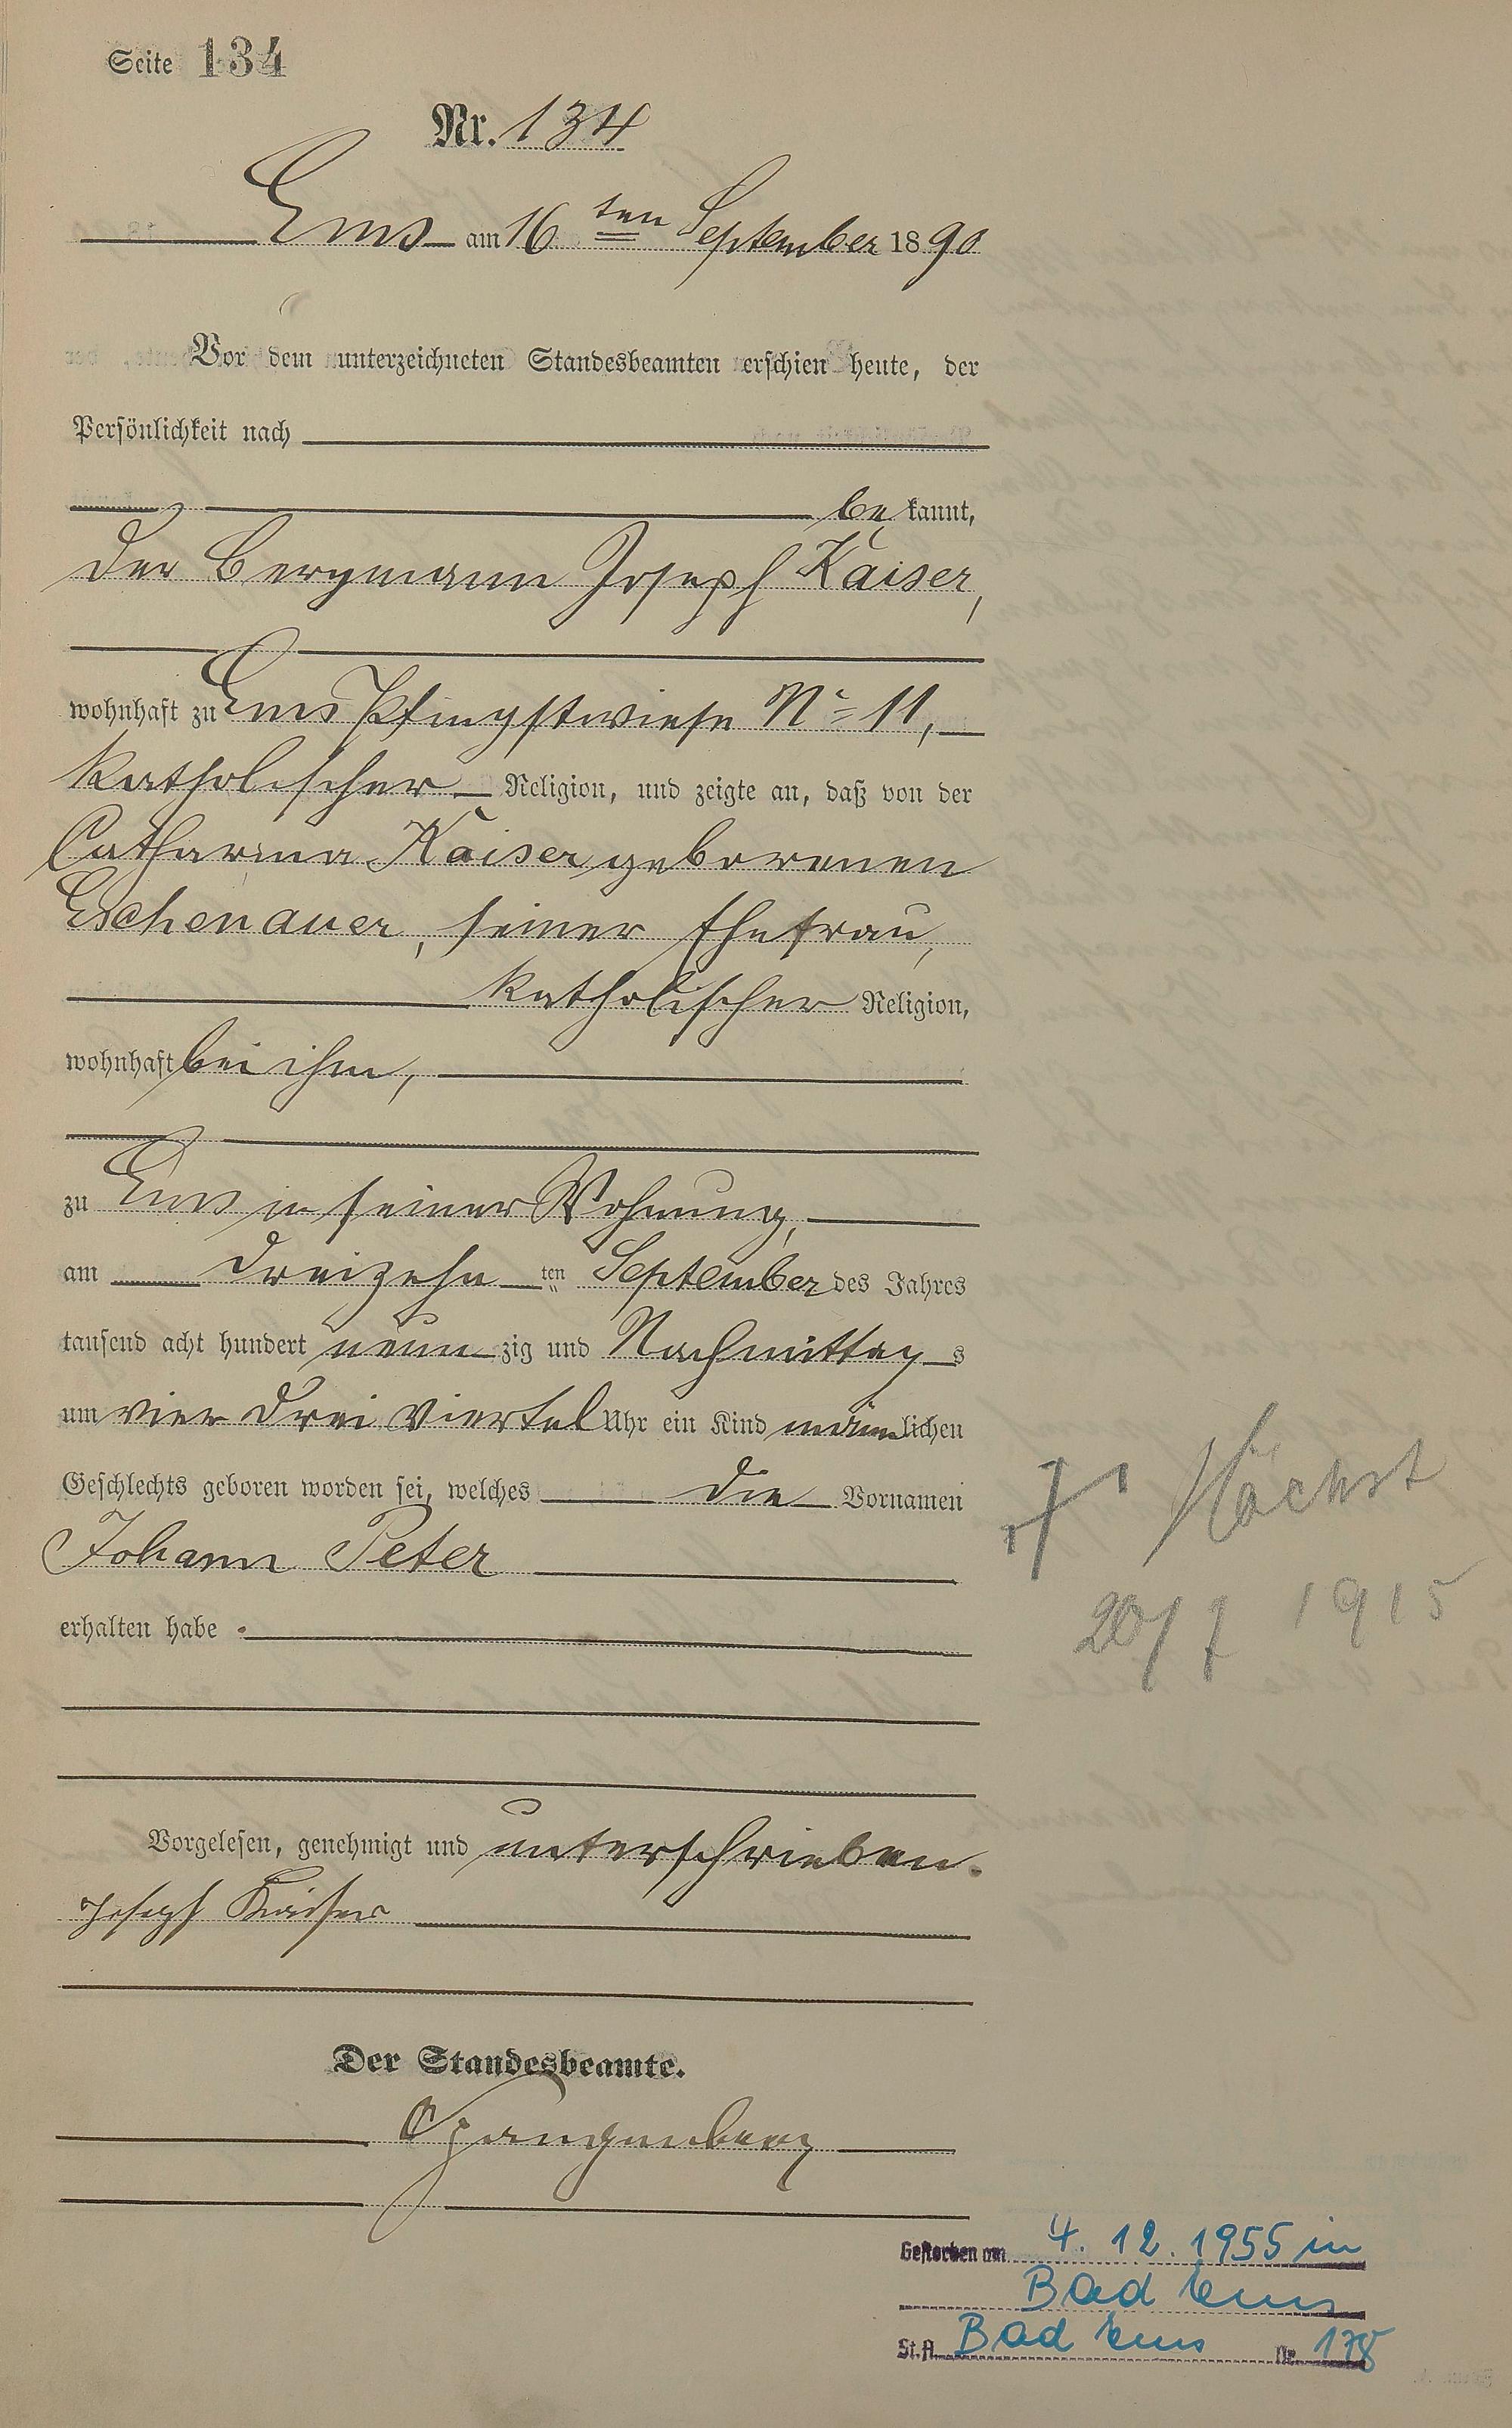 Seite 134
Nr. 134
Ems am 16ten September 1890
Vor dem unterzeichneten Standesbeamten erschien heute, der
Persönlichkeit nach
bekannt,
der Bergmann Joseph Kaiser,
wohnhaft zu Ems Pfingstwiese No 11,
katholischer Religion, und zeigte an, daß von der
Catharina Kaiser geborenen
Eschenauer, seiner Ehefrau,
katholischer Religion,
wohnhaft bei ihm,
zu Ems in seiner Wohnung,
am dreizehnten September des Jahres
tausend acht hundert neunzig und Nachmittags
um vier drei viertel Uhr ein Kind männlichen
Geschlechts geboren worden sei, welches die Vornamen
Johann Peter
erhalten habe.
Höchst
20/7 1915
Vorgelesen, genehmigt und unterschrieben.
Joseph Kaiser
Der Standesbeamte.
Gestorben am 4.12.1955 in
Bad Ems
St.A. Bad Ems Nr. 178